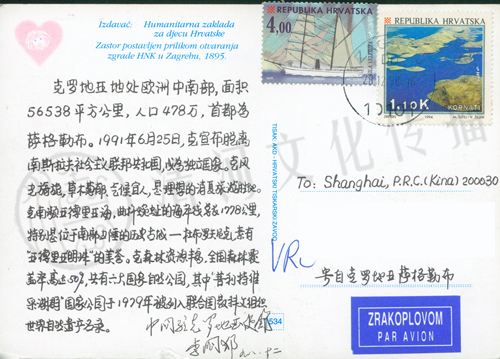 Izdavač: Humanitarna zaklada
za djecu Hrvatske
Zastor postavljen prilikom otvaranja
zgrade HNK u Zagrebu, 1895.
REPUBLIKA HRVATSKA
4,00
REPUBLIKA HRVATSKA
1.10K
KORNATI
克罗地亚地处欧洲中南部,面积
56538平方公里,人口478万,首都为
萨格勒布。1991年6月25日,克宣布脱离
南斯拉夫社会主义联邦共和国,成为独立国家。克风
光旖旎,草木葱郁,气候宜人,是理想的消夏避暑胜地。
克南濒亚得里亚海,曲折绵延的海岸线长达1778公里,
特别是位于南端的历史古城—杜布罗夫尼克,素有
“亚得里亚明珠”的美誉。克森林资源丰富,全国森林覆
盖率高达
共有六大国家自然公园,其中“普利特维
采湖国”国家公园于1979年被列入联合国教科文组织
世界自然遗产名录。
中国驻克罗地亚大使馆
To: Shanghai, P.R.C.(Kina) 200030
VRL
寄自克罗地亚萨格勒布
ZRAKOPLOVOM
PAR AVION
TISAK: AKD - HRVATSKI TISKARSKI ZAVOD
534